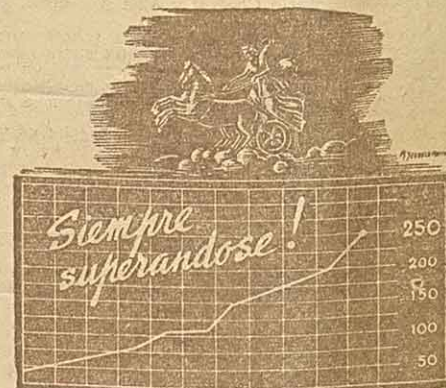 Siempre
superandose!
250
200
150
100
50